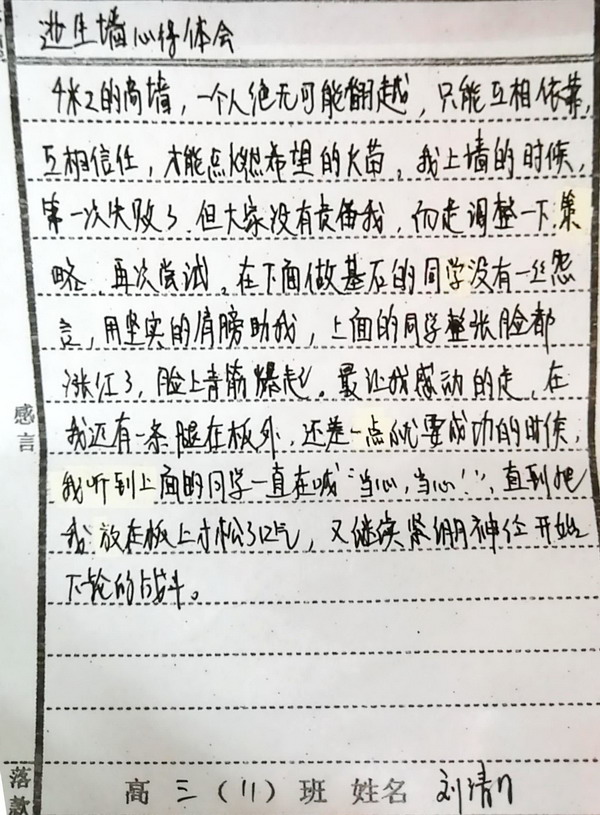 逃生墙心得体会
4米2的高墙，一个人绝无可能翻越，只能互相依靠，
互相信任，才能点燃希望的火苗。我上墙的时候，
第一次失败了，但大家没有责备我，而是调整一下策
略，再次尝试。在下面做基石的同学没有一丝怨
言，用坚实的肩膀助我，上面的同学整张脸都
涨红了，脸上青筋爆起。最让我感动的是，在
我还有一条腿在板外，还差一点就要成功的时候，
我听到上面的同学一直在喊“当心，当心！”，直到把
我放在板上才松了口气，又继续紧绷神经开始
下轮的战斗。
感言
落款
高三（11）班 姓名 刘清